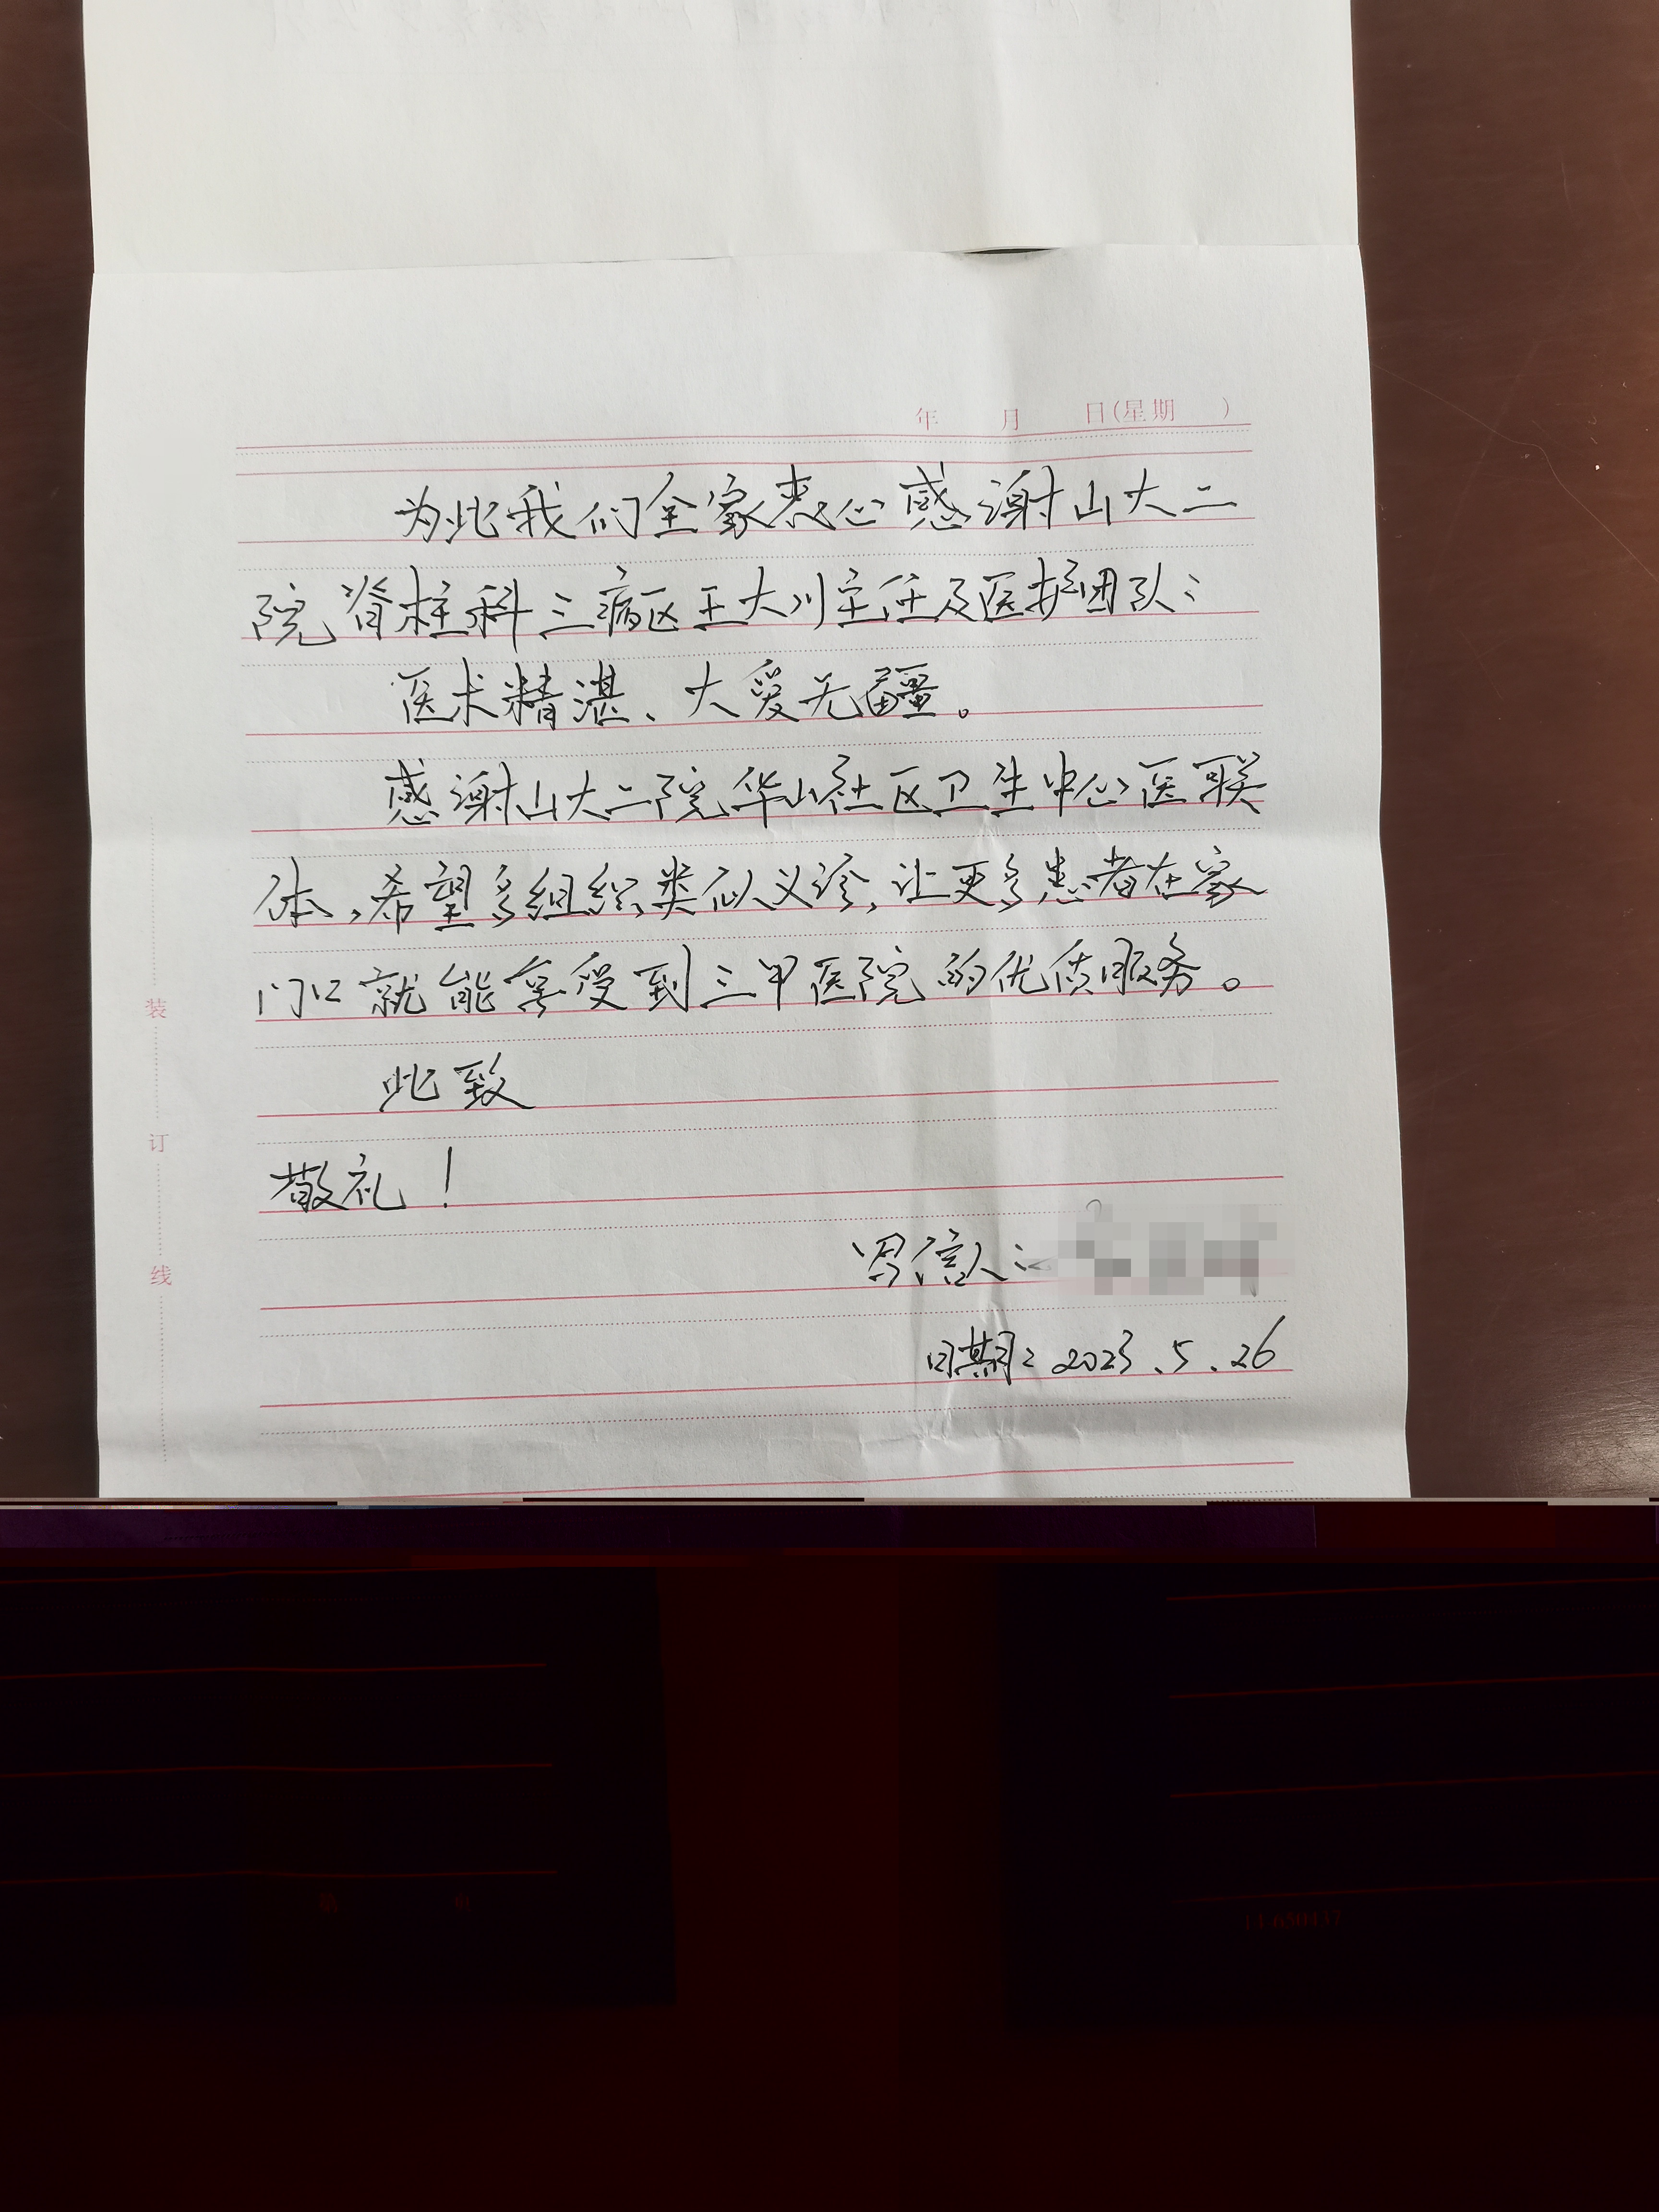 年 月 日(星期 )
为此我们全家衷心感谢山大二
院脊柱科三病区王大川主任及医护团队:
医术精湛、大爱无疆。
感谢山大二院华山社区卫生中心医联
体,希望多组织类似义诊,让更多患者在家
门口就能享受到三甲医院的优质服务。
此致
敬礼!
写信人:
日期:2023.5.26
装
订
线
第 页